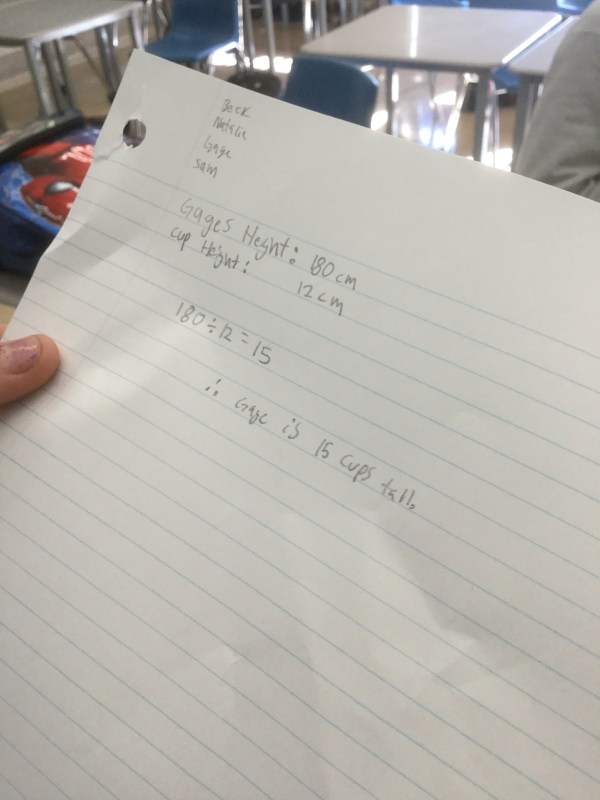 Beck
Natalie
Gage
Sam
Gages Heght: 180cm
Cup Height: 12cm
180÷12=15
∴ Gage is 15 cups tall.